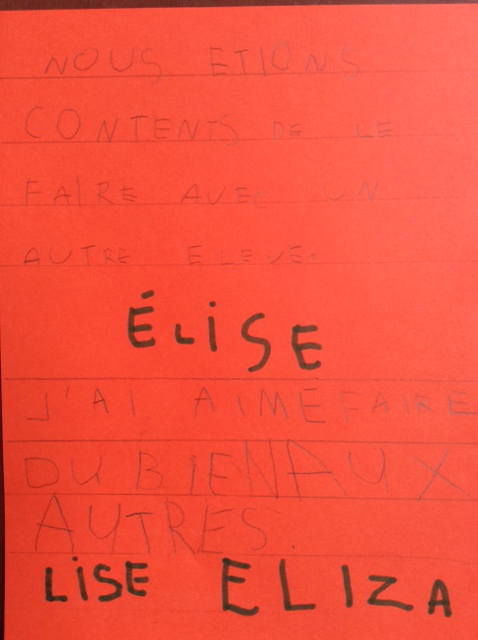 NOUS ETIONS
CONTENTS DE LE
FAIRE AVEC UN
AUTRE ELEVE.
ÉLiSE
J'AI AIMÉ FAIRE
DU BIEN AUX
AUTRES.
LiSE ELIZA